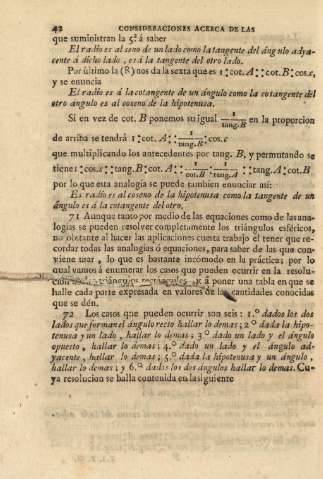 42 CONSIDERACIONES ACERCA DE LAS
que suministran la 5.ª á saber
El radio es al seno de un lado como la tangente del ángulo adya-
cente á dicho lado, es á la tangente del otro lado.
Por último la (R) nos da la sexta que es 1 : cot. A :: cot. B : cos. c,
y se enuncia
El radio es á la cotangente de un ángulo como la cotangente del
otro ángulo es al coseno de la hipotenusa.
Si en vez de cot. B ponemos su igual 1/tang. B en la proporcion
de arriba se tendrá 1 : cot. A :: 1/tang. B : cos. c
que multiplicando los antecedentes por tang. B, y permutando se
tiene 1 : cos. c :: tang. B : cot. A :: 1/cot. B : 1/tang. A :: tang. A : cot. B
por lo que esta analogía se puede tambien enunciar así:
Es radio es al coseno de la hipotenusa como la tangente de un
ángulo es á la cotangente del otro.
71 Aunque tanto por medio de las equaciones como de las ana-
logías se pueden resolver completamente los triángulos esféricos,
no obstante al hacer las aplicaciones cuesta trabajo el tener que re-
cordar todas las analogías ó equaciones, para saber de las que con-
viene usar, lo que es bastante incómodo en la práctica; por lo
qual vamos á enumerar los casos que pueden ocurrir en la resolu-
cion triángulos rectángulos y á poner una tabla en que se
halle cada parte expresada en valores de las cantidades conocidas
que se dén.
72 Los casos que pueden ocurrir son seis: 1.º dados los dos
lados que forman el ángulo recto hallar lo demas; 2.º dada la hipo-
tenusa y un lado, hallar lo demas; 3.º dado un lado y el ángulo
opuesto, hallar lo demas; 4.º dado un lado y el ángulo ad-
yacente, hallar lo demas; 5.º dada la hipotenusa y un ángulo,
hallar lo demas; y 6.º dados los dos ángulos hallar lo demas. Cu-
ya resolucion se halla contenida en la siguiente